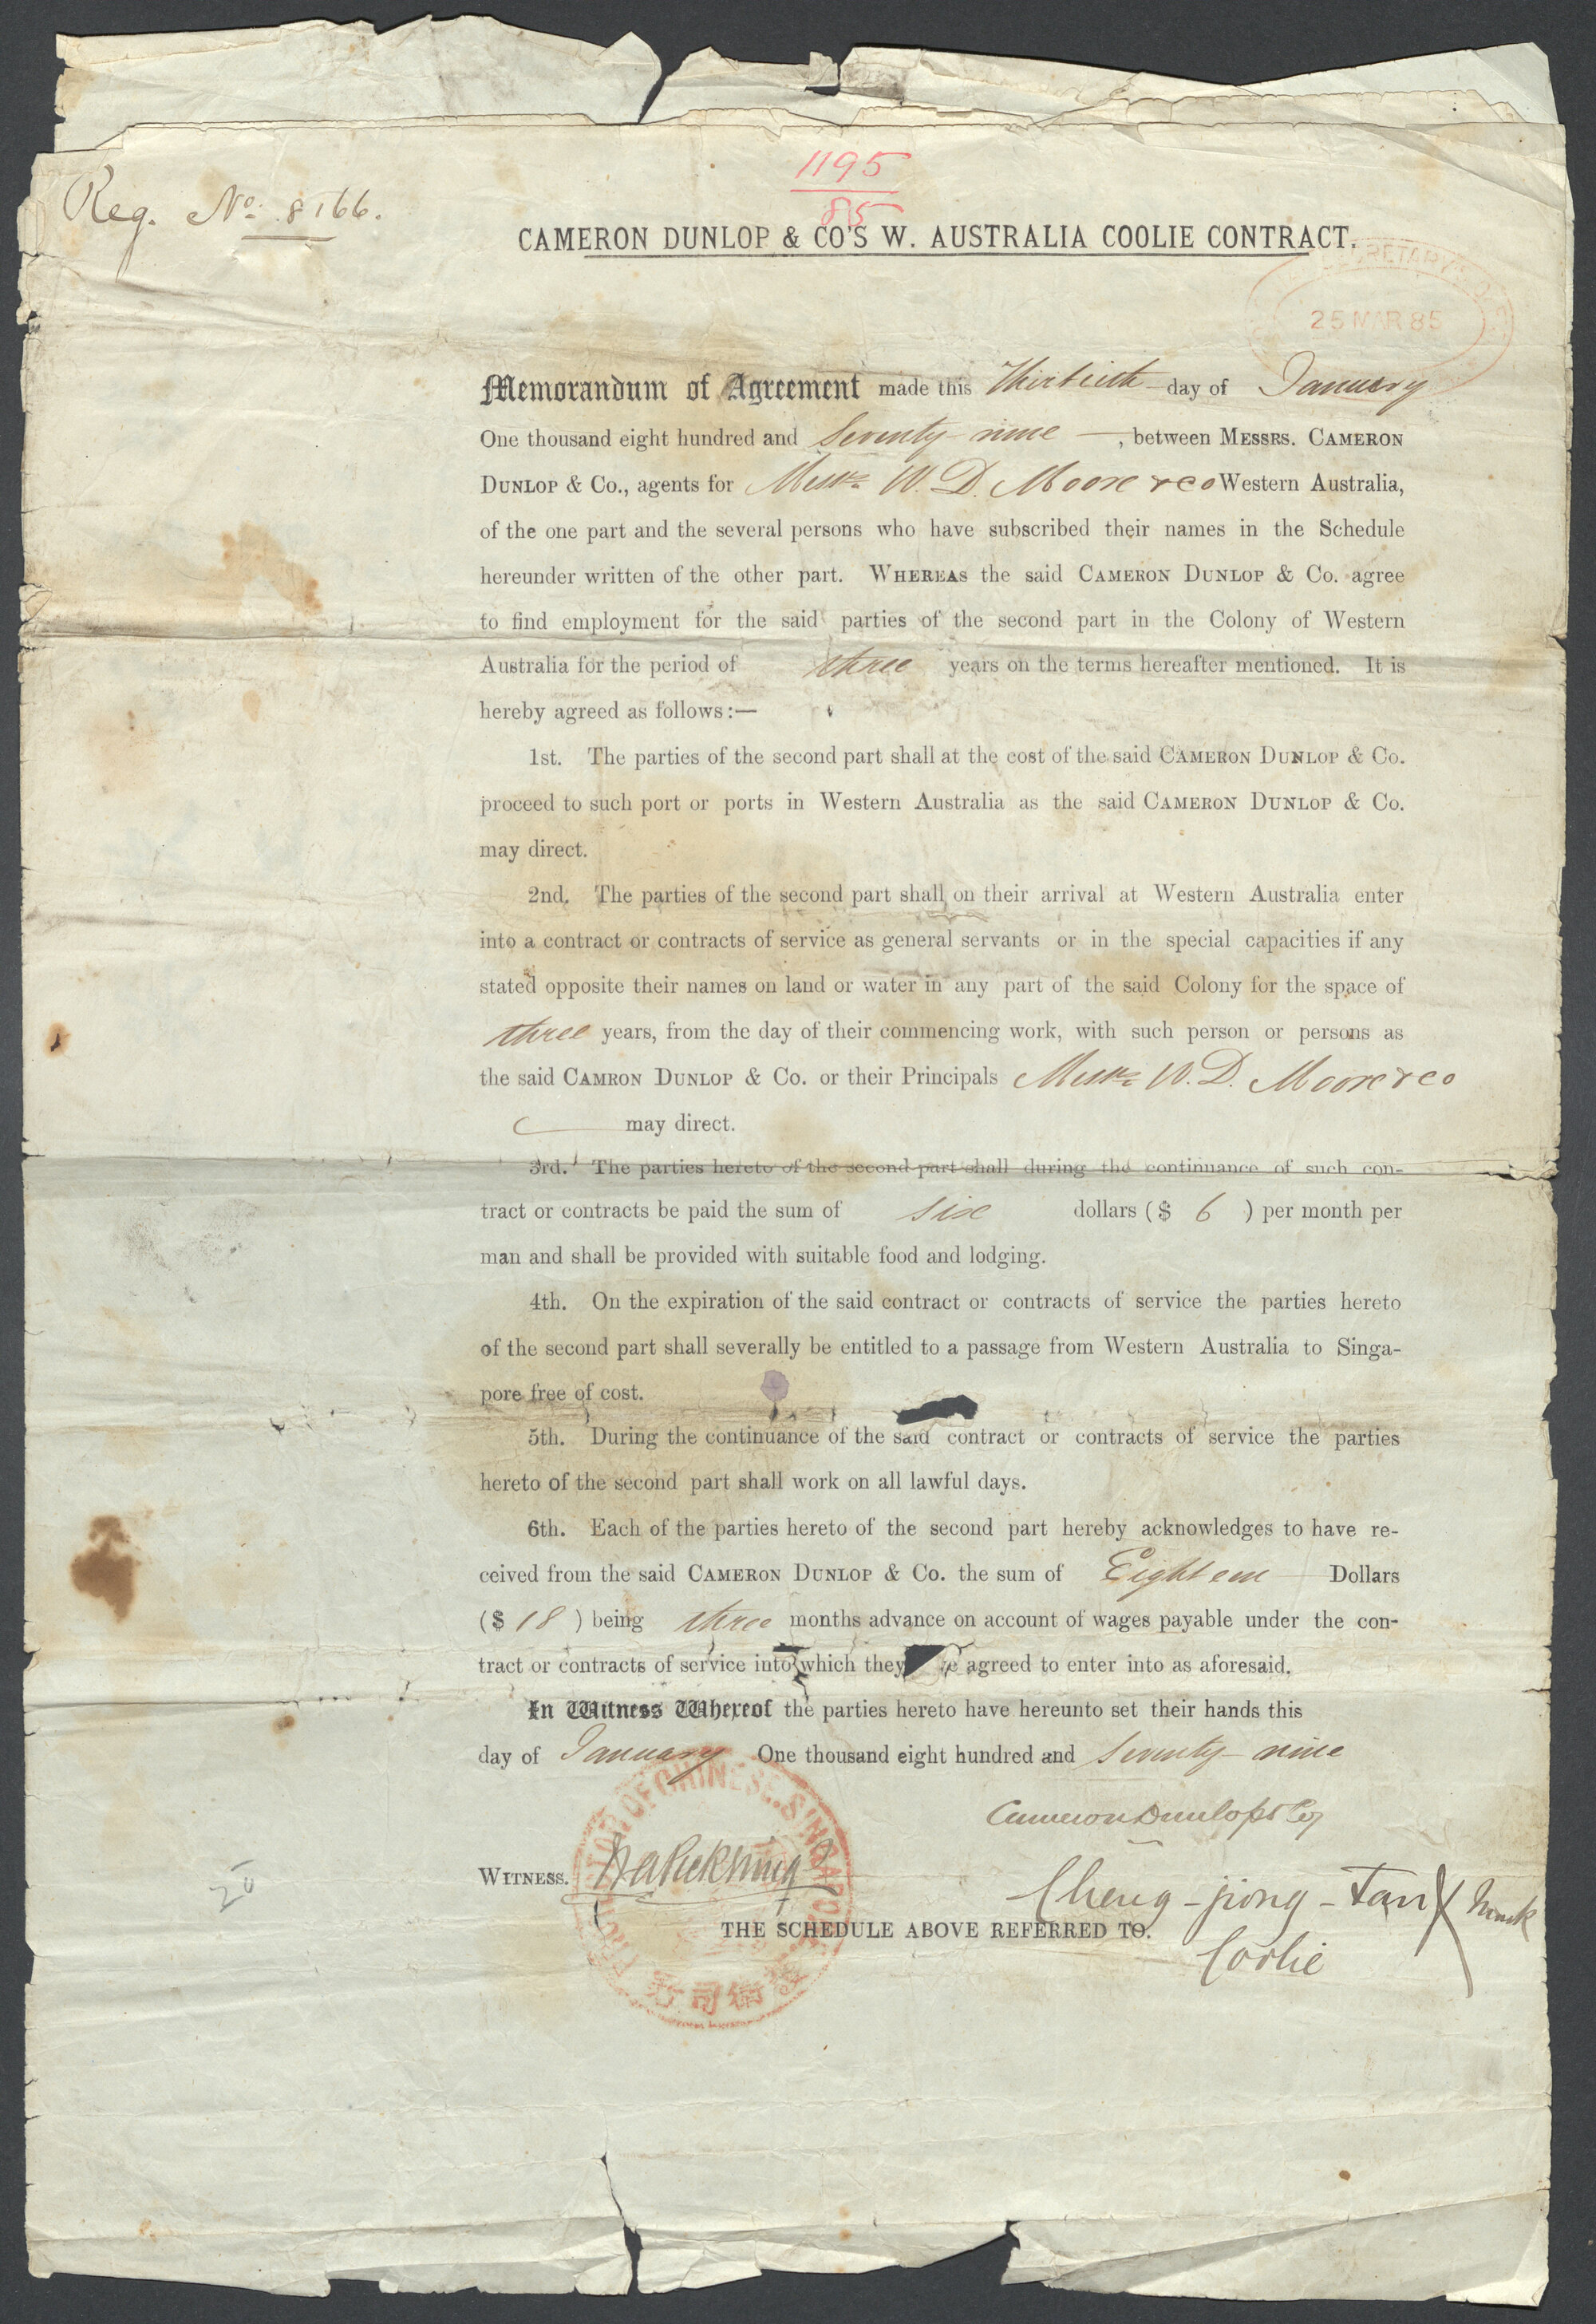 1195
85
Reg. No. 8166.
CAMERON DUNLOP & CO'S W. AUSTRALIA COOLIE CONTRACT.
SECRETARY'S
25 MAR 85
Memorandum of Agreement made this Thirtieth day of January
One thousand eight hundred and Seventy nine —, between MESSRS. CAMERON
DUNLOP & Co., agents for Messrs W. D. Moore & co Western Australia,
of the one part and the several persons who have subscribed their names in the Schedule
hereunder written of the other part. WHEREAS the said CAMERON DUNLOP & Co. agree
to find employment for the said parties of the second part in the Colony of Western
Australia for the period of three years on the terms hereafter mentioned. It is
hereby agreed as follows:—
1st. The parties of the second part shall at the cost of the said CAMERON DUNLOP & Co.
proceed to such port or ports in Western Australia as the said CAMERON DUNLOP & Co.
may direct.
2nd. The parties of the second part shall on their arrival at Western Australia enter
into a contract or contracts of service as general servants or in the special capacities if any
stated opposite their names on land or water in any part of the said Colony for the space of
three years, from the day of their commencing work, with such person or persons as
the said CAMRON DUNLOP & Co. or their Principals Messrs W. D. Moore & co
may direct.
3rd. The parties hereto of the second part shall during the continuance of such con-
tract or contracts be paid the sum of six dollars ($ 6 ) per month per
man and shall be provided with suitable food and lodging.
4th. On the expiration of the said contract or contracts of service the parties hereto
of the second part shall severally be entitled to a passage from Western Australia to Singa-
pore free of cost.
5th. During the continuance of the said contract or contracts of service the parties
hereto of the second part shall work on all lawful days.
6th. Each of the parties hereto of the second part hereby acknowledges to have re-
ceived from the said CAMERON DUNLOP & Co. the sum of Eighteen Dollars
($ 18 ) being three months advance on account of wages payable under the con-
tract or contracts of service into which they agreed to enter into as aforesaid.
In Witness Whereof the parties hereto have hereunto set their hands this
day of January One thousand eight hundred and Seventy nine
Cameron Dunlop & Co
OF CHINESE. SINGAPORE
WITNESS.
Cheng-jiong-Tan X mark
THE SCHEDULE ABOVE REFERRED TO.
Coolie
20